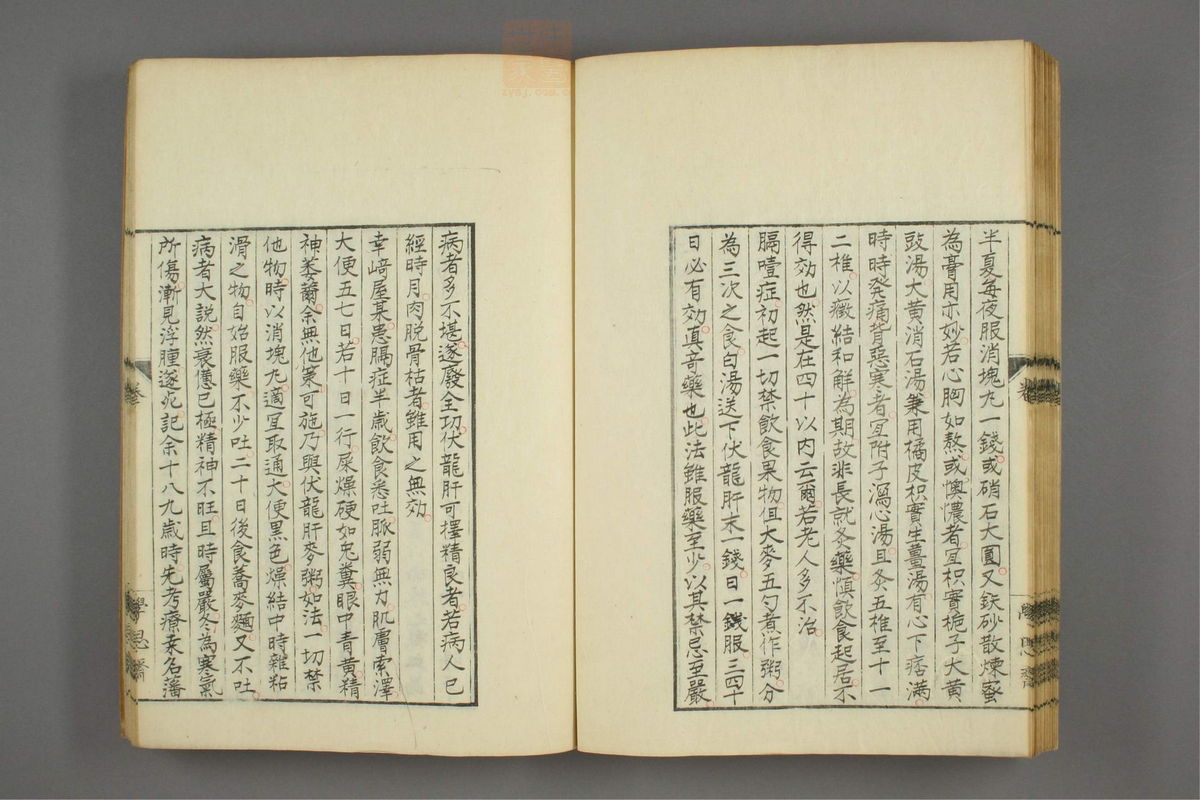 半夏每夜服消塊丸一錢或硝石大圓又鉄砂散煉蜜
為膏用亦妙若心胸如熬或懊憹者宜枳實梔子大黃
豉湯大黃消石湯兼用橘皮枳實生薑湯有心下痞滿
時時發痛背惡寒者宜附子瀉心湯且灸五椎至十一
二椎以癥結和解為期故非長就灸藥慎飲食起居不
得効也然是在四十以内云爾若老人多不治
膈噎症初起一切禁飲食果物但大麥五勺煮作粥分
為三次之食白湯送下伏龍肝末一錢日一錢服三四十
日必有効真奇藥也此法雖服藥至少以其禁忌至嚴
病者多不堪遂廢全功伏龍肝可擇精良者若病人已
經時月肉脫骨枯者雖用之無効
幸崎屋某患膈症半歲飲食悉吐脈弱無力肌膚索澤
大便五七日若十日一行屎燥硬如兎糞眼中青黃精
神萎薾余無他策可施乃與伏龍肝麥粥如法一切禁
他物時以消塊丸適宜取通大便黑色燥結中時雜粘
滑之物自始服藥不少吐二十日後食蕎麥麵又不吐
病者大説然衰憊已極精神不旺且時屬嚴冬為寒氣
所傷漸見浮腫遂死記余十八九歲時先考療桑名藩
卷
學思齋
八